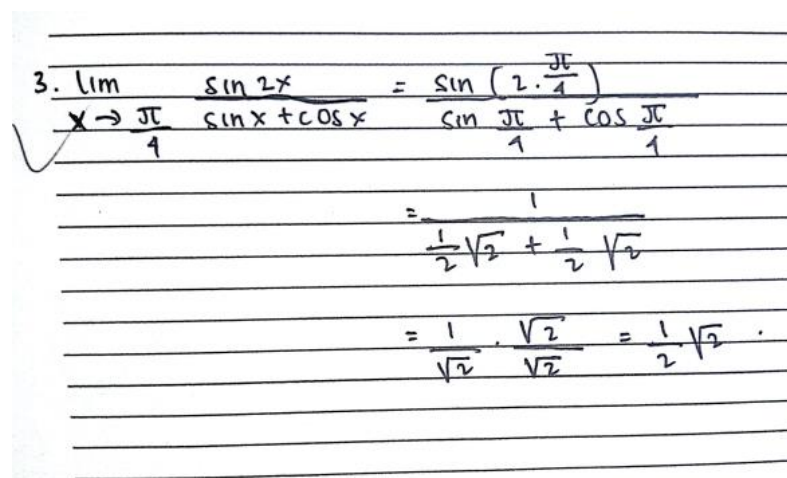 3. lim x→π/4 sin 2x / (sin x + cos x) = sin (2 · π/4) / (sin π/4 + cos π/4)
= 1 / (1/2 √2 + 1/2 √2)
= 1/√2 · √2/√2 = 1/2 √2 .